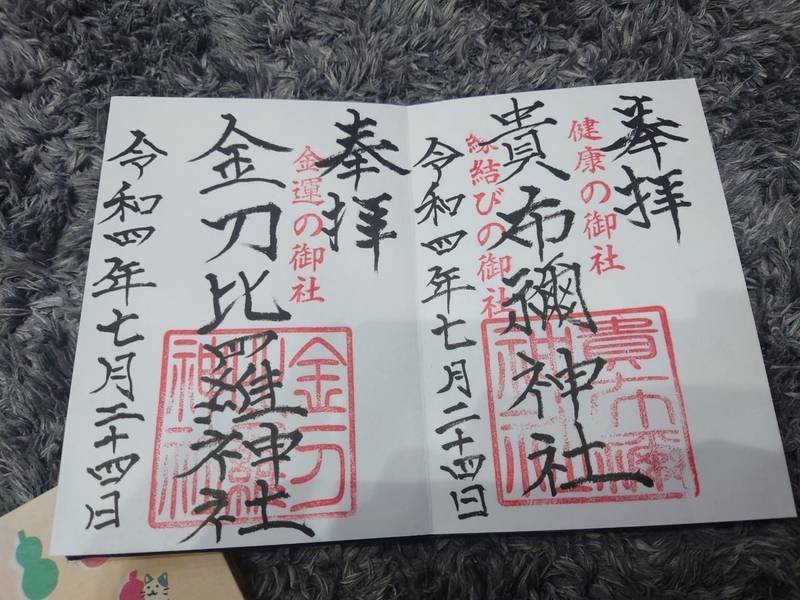 奉拝
健康の御社
貴布禰神社
縁結びの御社
令和四年七月二十四日
貴布禰神社
奉拝
金運の御社
金刀比羅神社
令和四年七月二十四日
金刀比羅神社